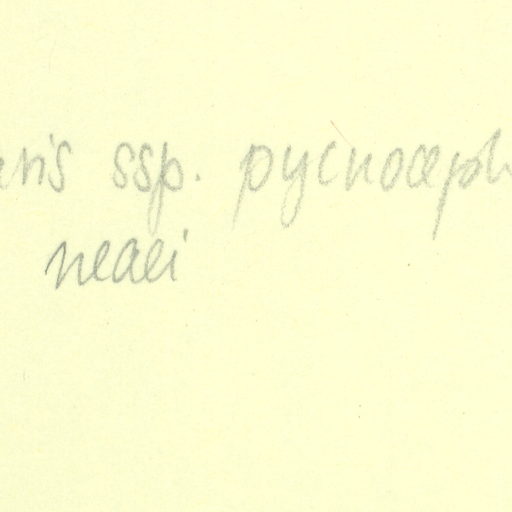 aris ssp. pycnoceph
neaei